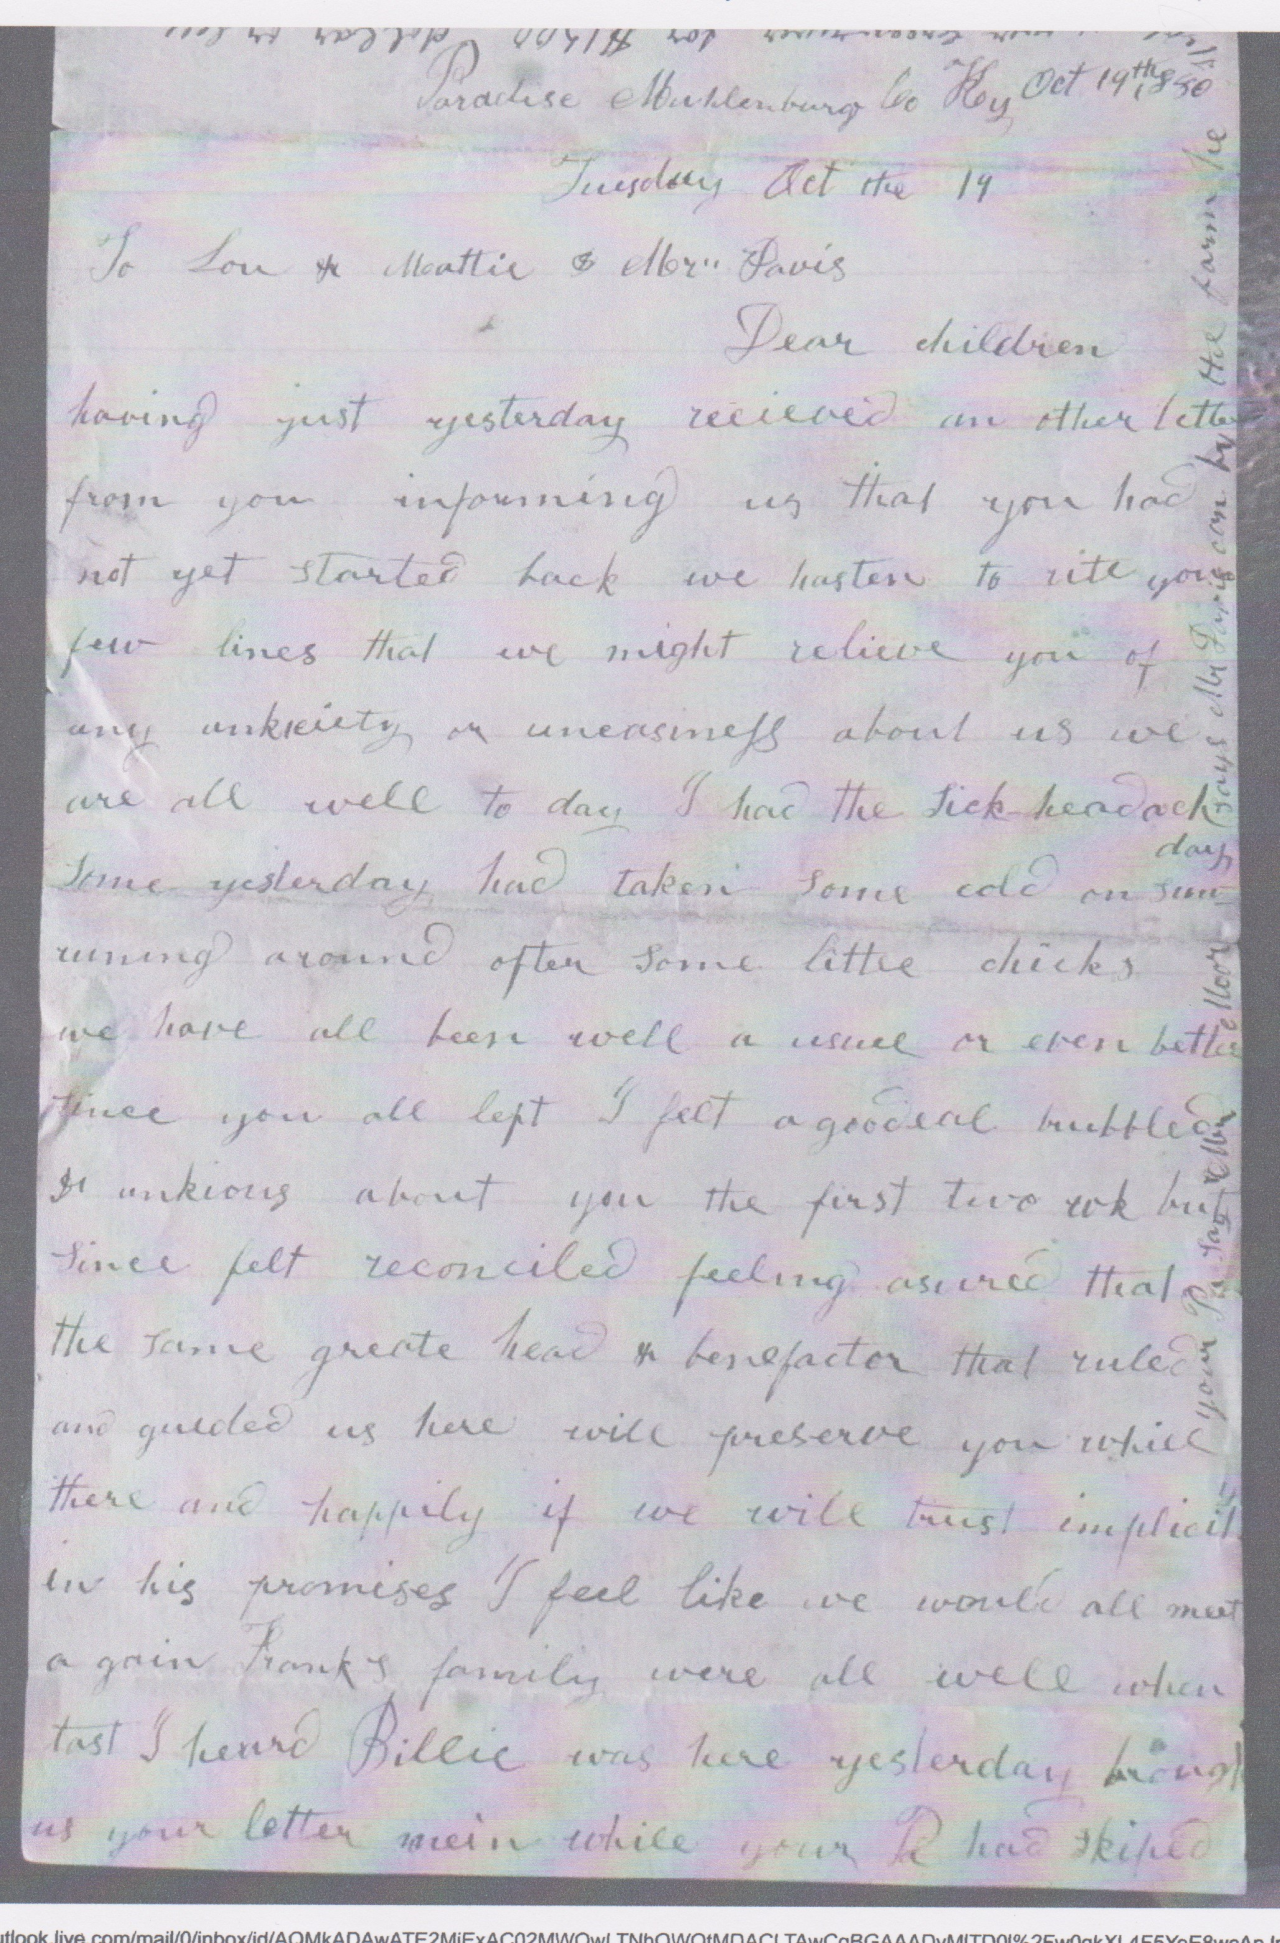 Paradise Muhlenburg Co Ky Oct 19th 1880
Tuesday Oct the 19
To Lou & Mattie & Mr" Davis
Dear children
having just yesterday recieved an other letter
from you informing us that you had
not yet started back we hasten to rite you
few lines that we might relieve you of
any ankxiety or uneasiness about us we
are all well to day I had the sick headach
some yesterday had taken some cold on sun
day
runing around after some little chicks
we have all been well a usuel or even better
since you all left I felt a goodeal trubbled
& ankious about you the first two wk but
since felt reconciled feeling asured that
the same greate head & benefactor that ruled
and guided us here will preserve you while
there and happily if we will trust implicit
in his promises I feel like we would all meet
a gain Frank's family were all well when
last I heard Billie was here yesterday brought
us your letter mein while your Pa had skiped
your Pa says Mr Moor says Mr Davis can by the farm he
for $1500 dollar or less
outlook.live.com/mail/0/inbox/id/